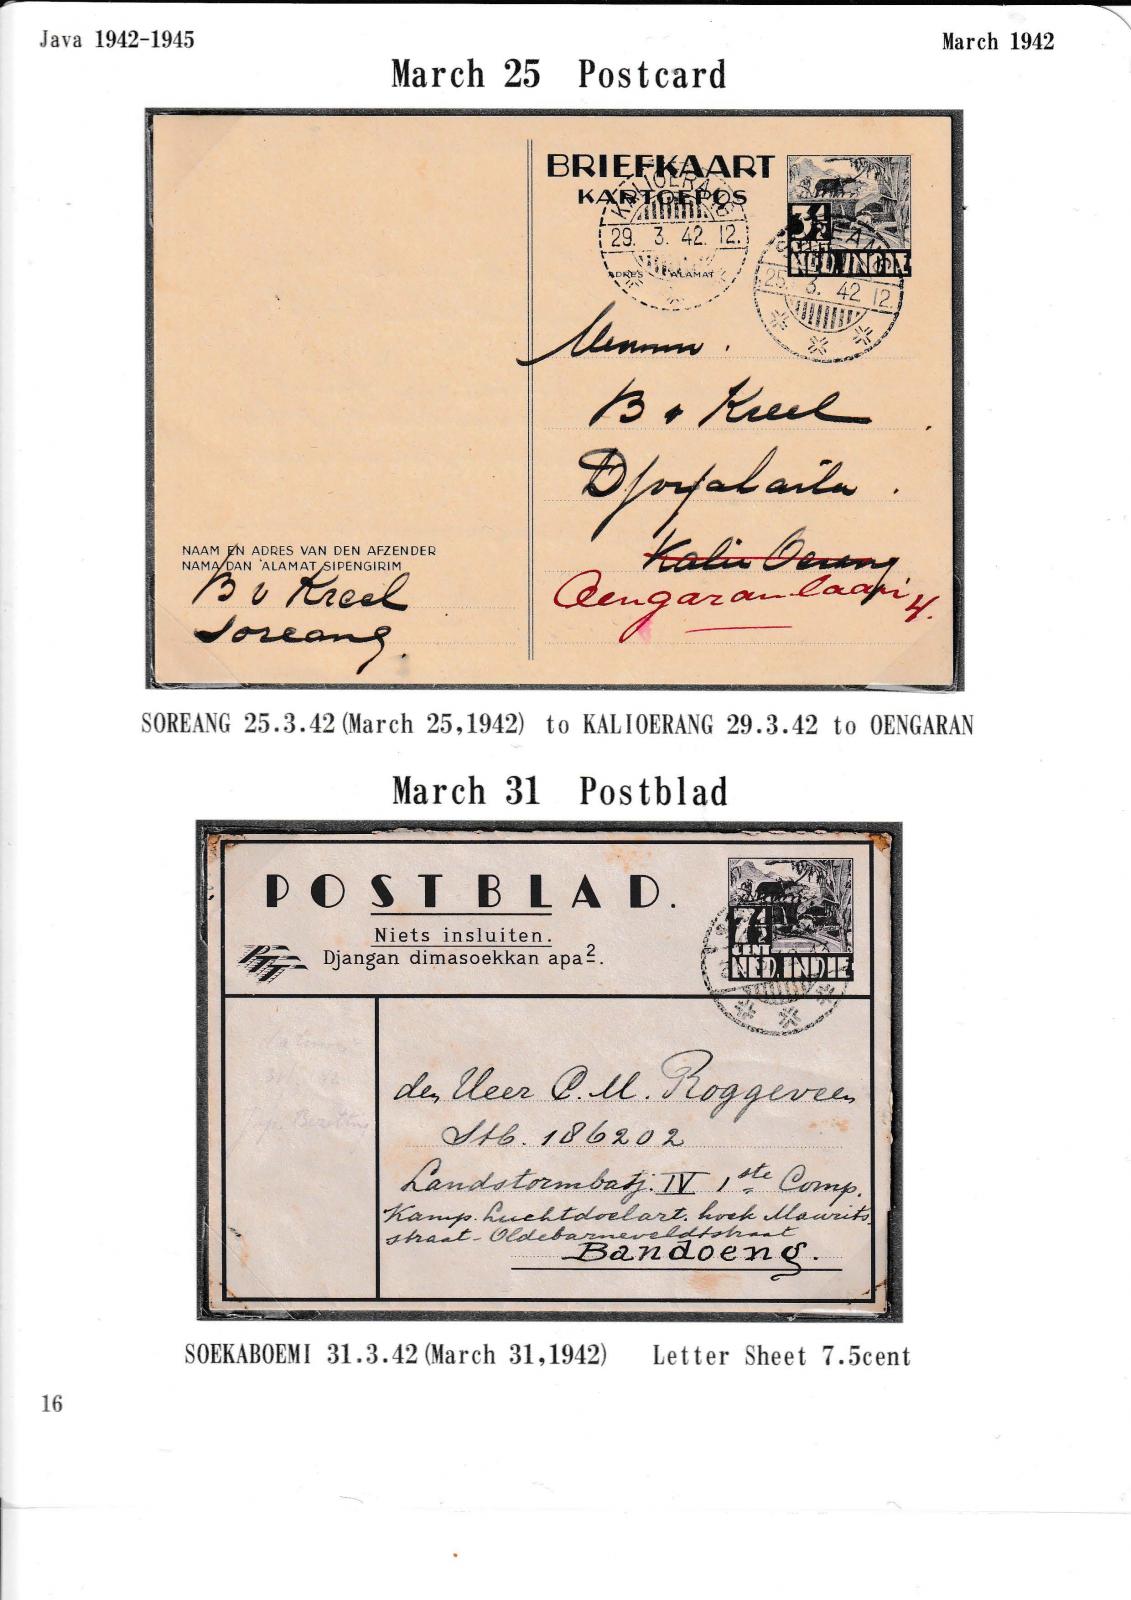 Java 1942-1945
March 1942
March 25 Postcard
BRIEFKAART
KARTOEPOS
3½
CENT
NED. INDIE
KALIOERANG
29. 3. 42. 12.
ADRES ALAMAT
25. 3. 42 12.
B v Kreel
Kalie Oerang
Oengaran
4.
NAAM EN ADRES VAN DEN AFZENDER
NAMA DAN ALAMAT SIPENGIRIM
B v Kreel
Soreang.
SOREANG 25.3.42(March 25,1942) to KALIOERANG 29.3.42 to OENGARAN
March 31 Postblad
POSTBLAD.
Niets insluiten.
Djangan dimasoekkan apa2.
PTT
7½
CENT
NED. INDIE
den Heer C. M. Roggeveen
Stb. 186202
Landstormbatj. IV 1ste Comp.
Kamp. Luchtdoelart. hoek Maurits-
straat - Oldebarneveldtstraat
Bandoeng.
SOEKABOEMI 31.3.42(March 31,1942) Letter Sheet 7.5cent
16